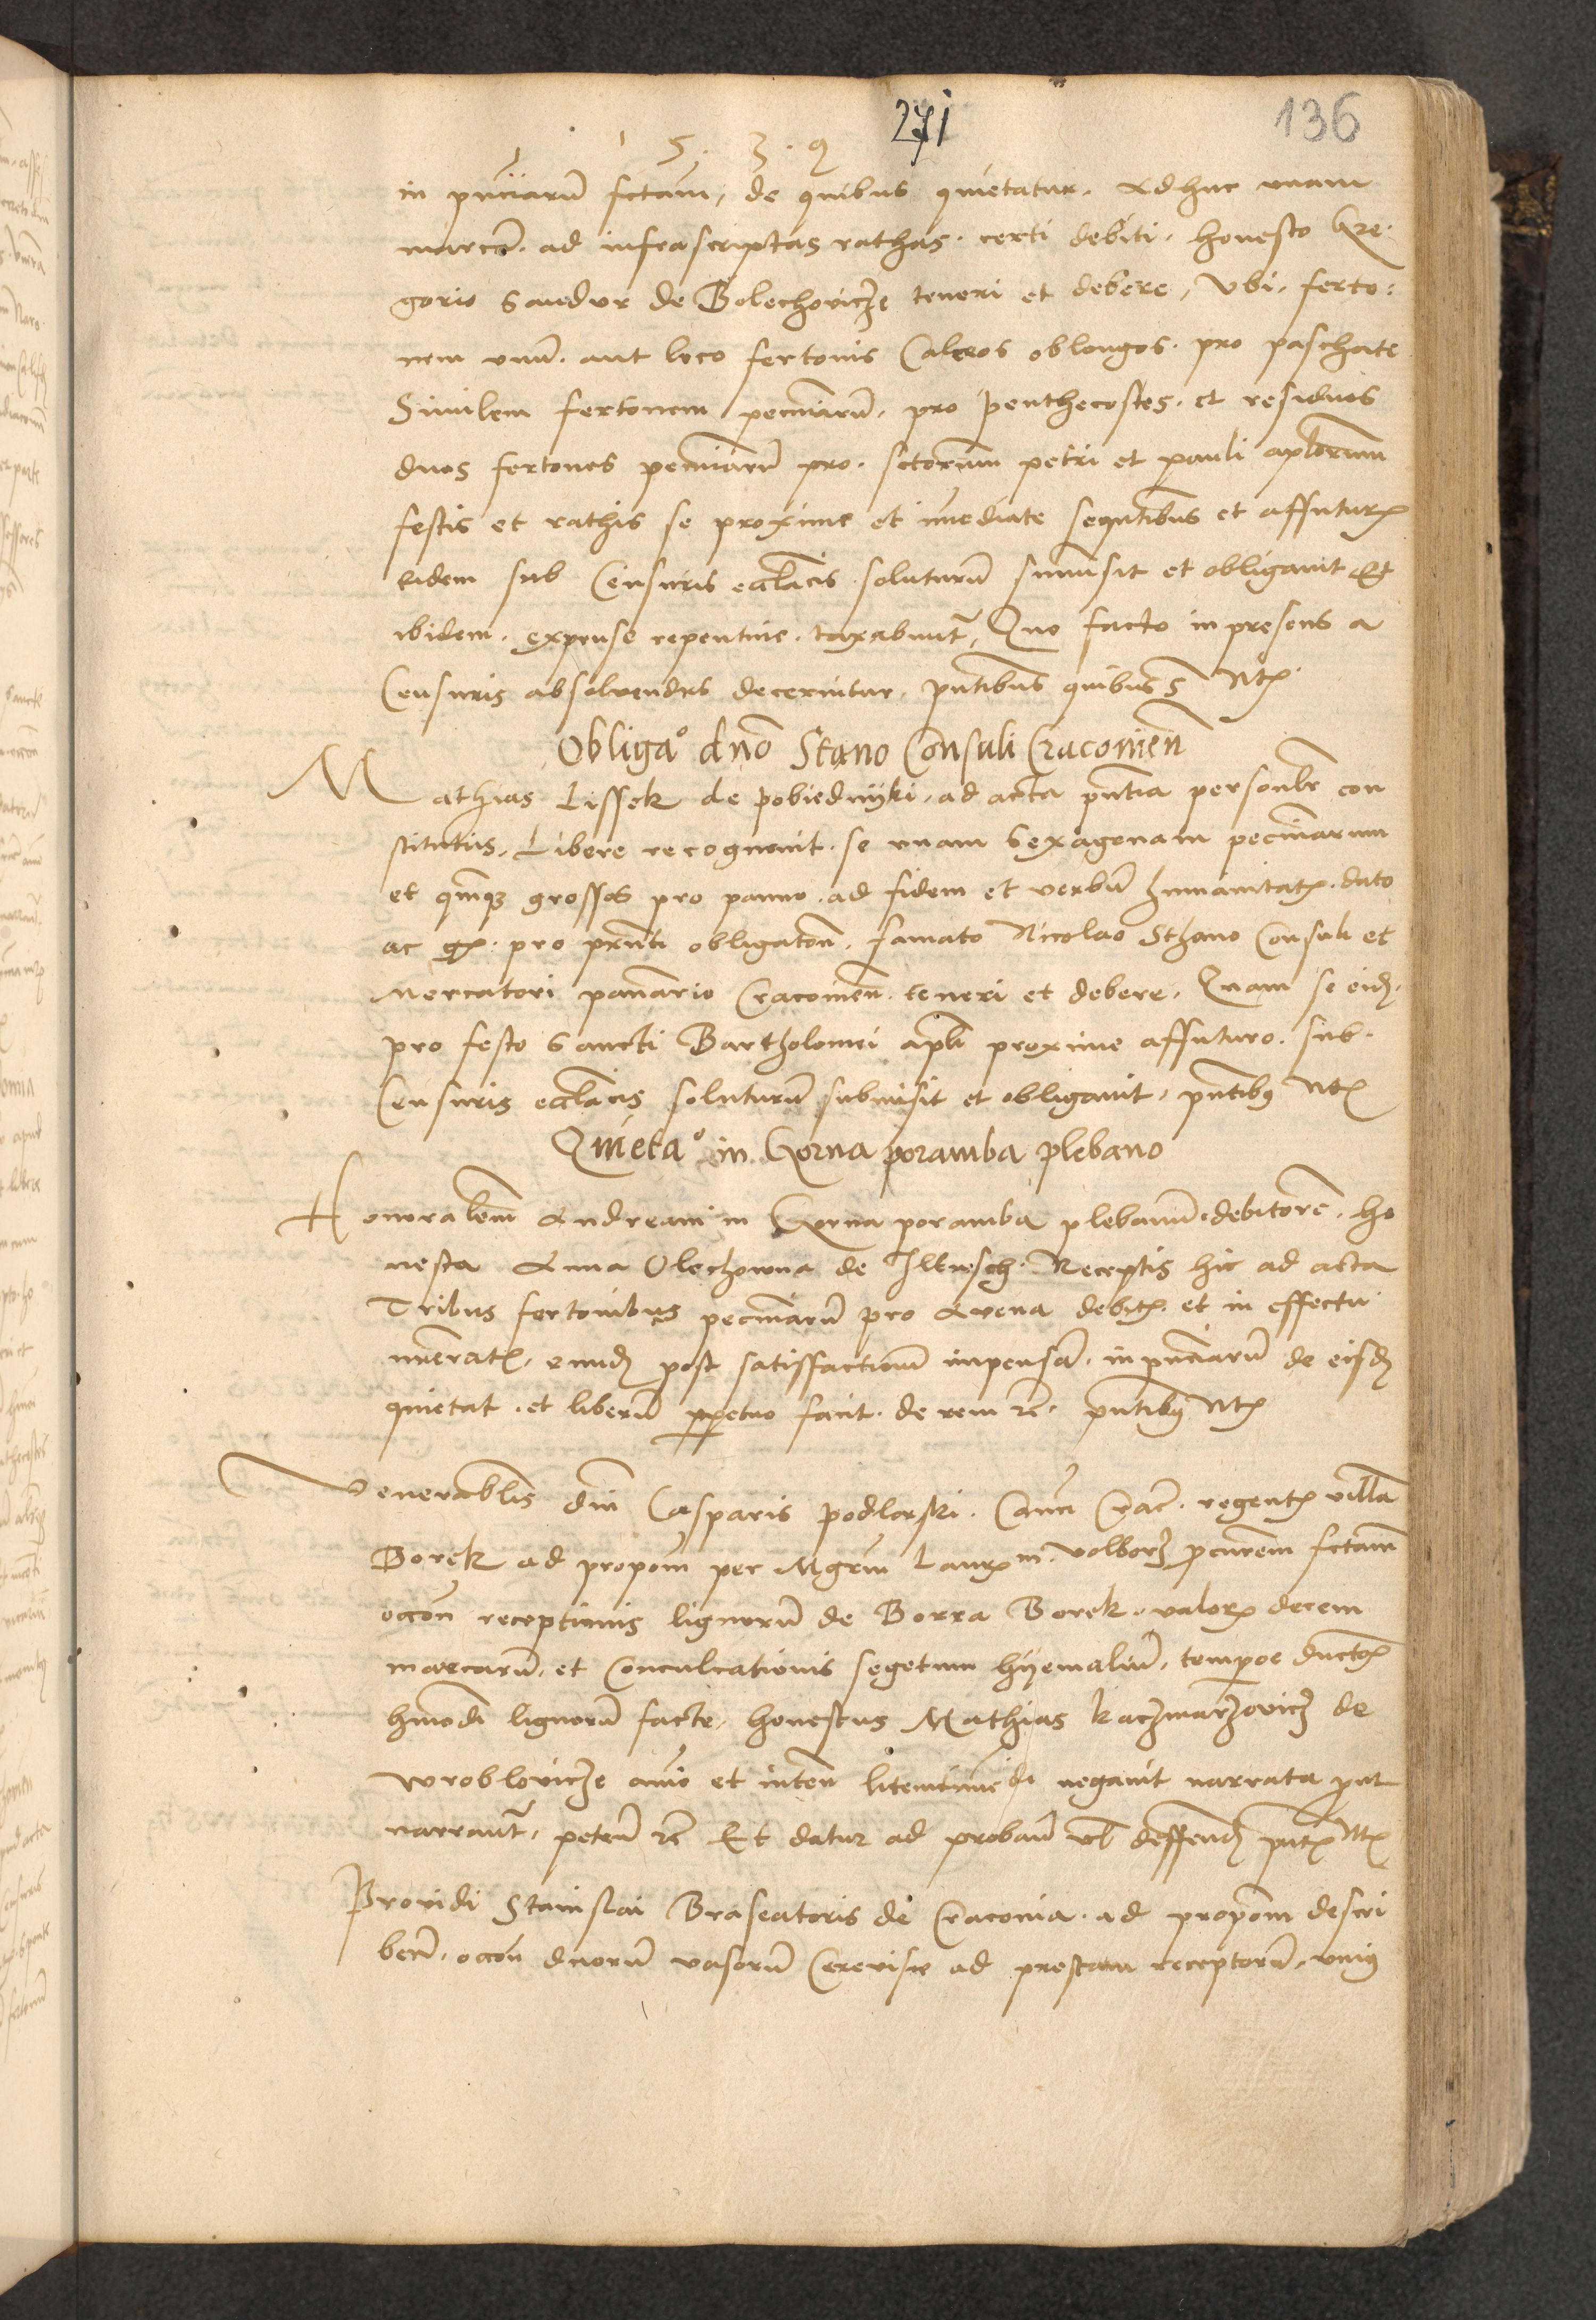 271
136
1 5 . 3 . 9
in pn̄ciarū fctam, de quibus quietatur. Adhuc unam
marcā. ad infrascriptas rathas. certi debiti. honesto Gre-
gorio Sandor de Bolechovicze teneri et debere, Ubi. ferto-
nem unū. aut loco fertonis Calceos oblongos. pro paschate
Similem fertonem pecuniarū. pro penthecostes. et residuos
duos fertones pecuniarū pro. sctorum petri et pauli aplorum
festis et rathis se proxime et īmediate sequtibus et affuturꝭ
eidem sub Censuris ecclacis soluturū summisit et obligavit Et
ibidem. expense repentine. taxabunt̄, Quo facto in presens a
Censuris absolvendus decernitur. pn̄tibus quibus s Ntꝭ
Obliga° dno Stano Consuli Cracovien̄
Mathias Lissek de pobiednyki. ad acta pn̄tia personlr con
stitutus. Libere recognovit. se unam Sexagenam pecuniarum
et qnqȝ grossos pro panno. ad fidem et verbū humanitatꝭ. dato
ac pro pn̄ti obligaton̄. famato Nicolao Sthano Consuli et
Mercatori pannario Cracovien̄. teneri et debere. Quam se eidꝫ.
pro festo Sancti Bartholomei apli proxime affuturo. sub.
Censuris ecclacis soluturū submisit et obligavit. pn̄tibꝫ Ntꝭ
Quieta° in Gorna poramba plebano
Honorablem Andream in Gorna poramba plebanū. debitorē. ho
nesta Anna Olechowna de Ilkusch. Receptis hic ad acta
Tribus fertonibus pecuniarū pro Avena debitꝭ. et in effectu
nūeratꝭ. eundꝫ post satisfactionū inpensā. in pn̄ciarū de eisdꝫ
quietat. et liberū ppetuo facit. de rem rc̄. pn̄tibꝫ Ntꝭ
Venerablis dni Casparis podlowski. Canci Crac̄. regentꝭ villā
Borek ad propom per Mgrm Laurꝭ in Volborz pcurem fctam
occōn receptionis lignorū de Borra Borek. valorꝭ decem
marcarū. et Conculcationis segetum hyemaliū. tempore ductoꝭ
hmodi lignorū facte. honestus Mathias kaczmarzovicz de
Wroblovicze aīo et inten̄ litem negavit narrata put
narrant̄. peten̄ rc̄ Et datur ad proband̄ vl deffendꝫ pn̄tꝭ Ntꝭ
Providi Stanislai Braseatoris de Cracovia. ad propom descri
ben̄. occōn duorū vasorū Cerevisie ad prestam receptorū. uniꝫ